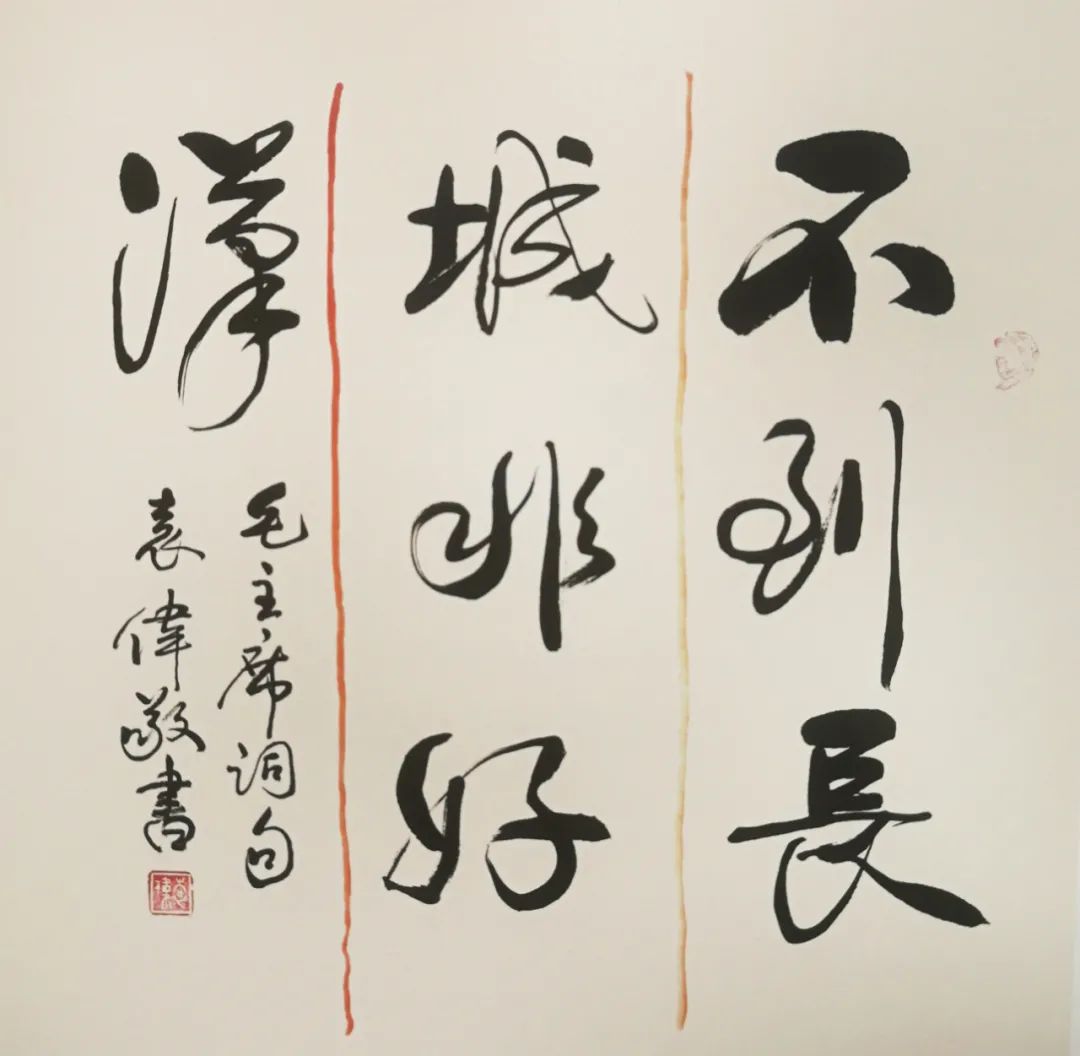 不到長
城非好
漢
毛主席词句
袁偉敬書